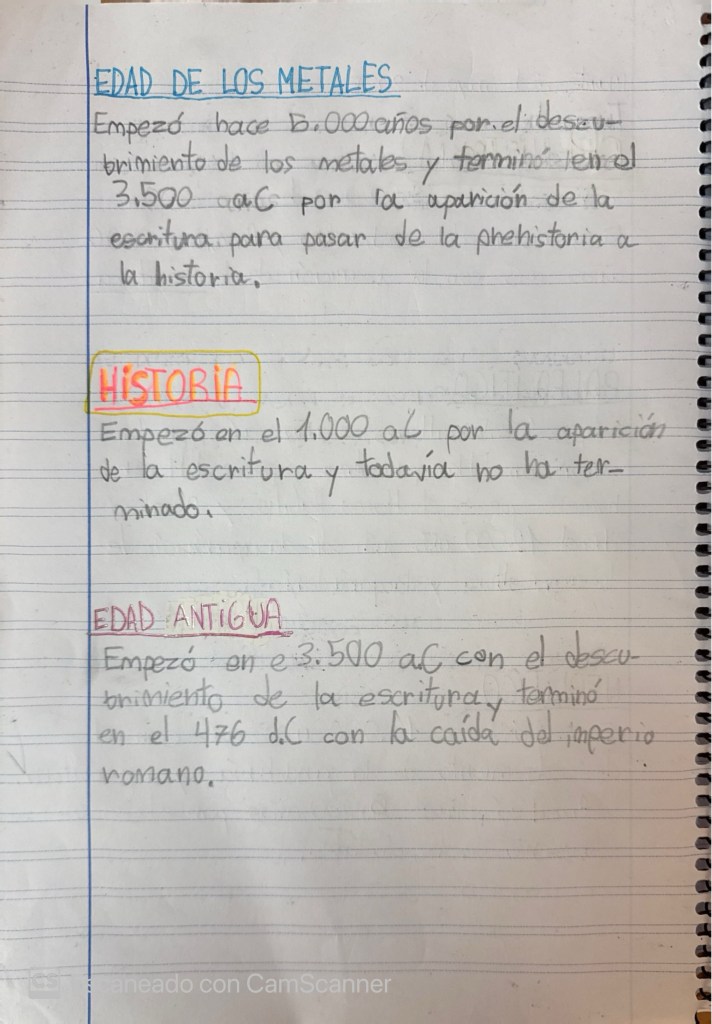 EDAD DE LOS METALES
Empezó hace 5.000 años por el descu-
brimiento de los metales y terminó en el
3.500 aC por la aparición de la
escritura para pasar de la prehistoria a
la historia.
HiSTORiA
Empezó en el 1.000 aC por la aparición
de la escritura y todavía no ha ter-
minado.
EDAD ANTiGUA
Empezó en e 3.500 aC con el descu-
brimiento de la escritura y terminó
en el 476 d.C con la caída del imperio
romano.
CS Escaneado con CamScanner